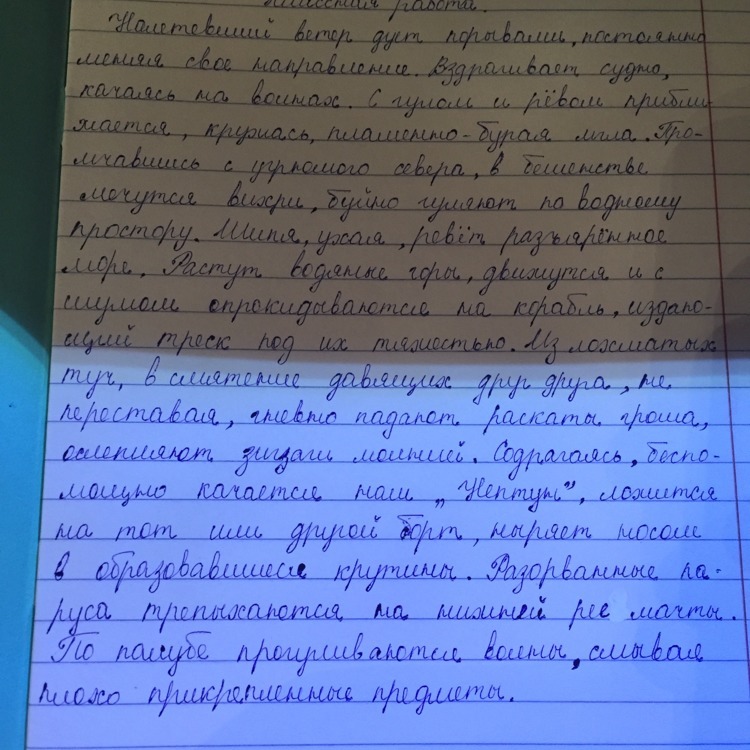 Классная работа.
Налетевший ветер дует порывами, постоянно
меняя свое направление. Вздрагивает судно,
качаясь на волнах. С гулом и рёвом прибли-
жается, кружась, пламенно-бурая мгла. Про-
мчавшись с угрюмого севера, в бешенстве
мечутся вихри, буйно гуляют по водному
простору. Шипя, ухая, ревёт разъярённое
море. Растут водяные горы, движутся и с
шумом опрокидываются на корабль, издаю-
щий треск под их тяжестью. Из лохматых
туч, в смятение давящих друг друга, не
переставая, гневно падают раскаты грома,
ослепляют зигзаги молний. Содрагаясь, беспо-
мощно качается наш „Нептун", ложится
на тот или другой борт, ныряет носом
в образовавшиеся крутины. Разорванные па-
руса трепыхаются на нижней рее мачты.
По палубе прогуливаются волны, смывая
плохо прикрепленные предметы.